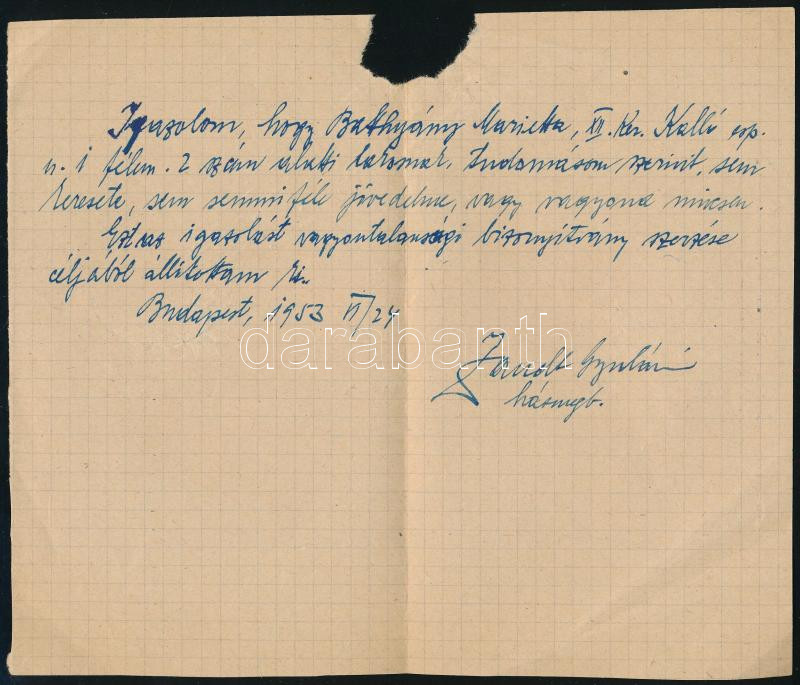 Igazolom, hogy Bathyány Marietta, XII. Ker. Kalló esp.
u. 1 félem. 2 szám alatti lakosnak. tudomásom szerint, sem
keresete, sem semmiféle jövedelme, vagy vagyona nincsen.
Ezt az igazolást vagyontalansági bizonyítvány szerzése
céljából állítottam ki.
Budapest, 1953 VI/24
Gyuláné
házmegb.
darabanth